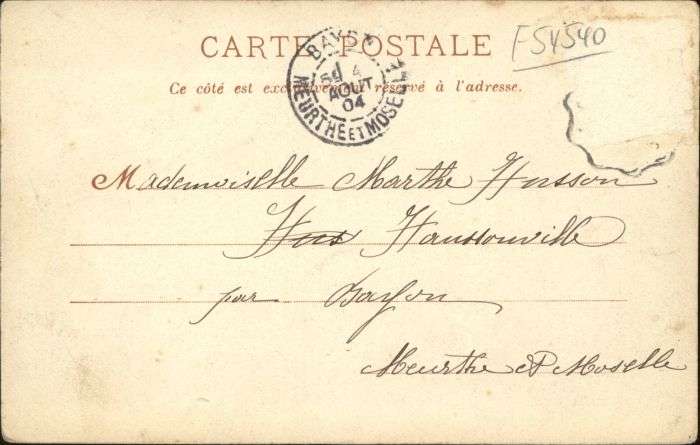 CARTE POSTALE
F54540
BAYON
4
AOUT
04
MEURTHE ET MOSELLE
Ce côté est exclusivement réservé à l'adresse.
Mademoiselle Marthe Husson
Haussonville
par Bayon
Meurthe et Moselle